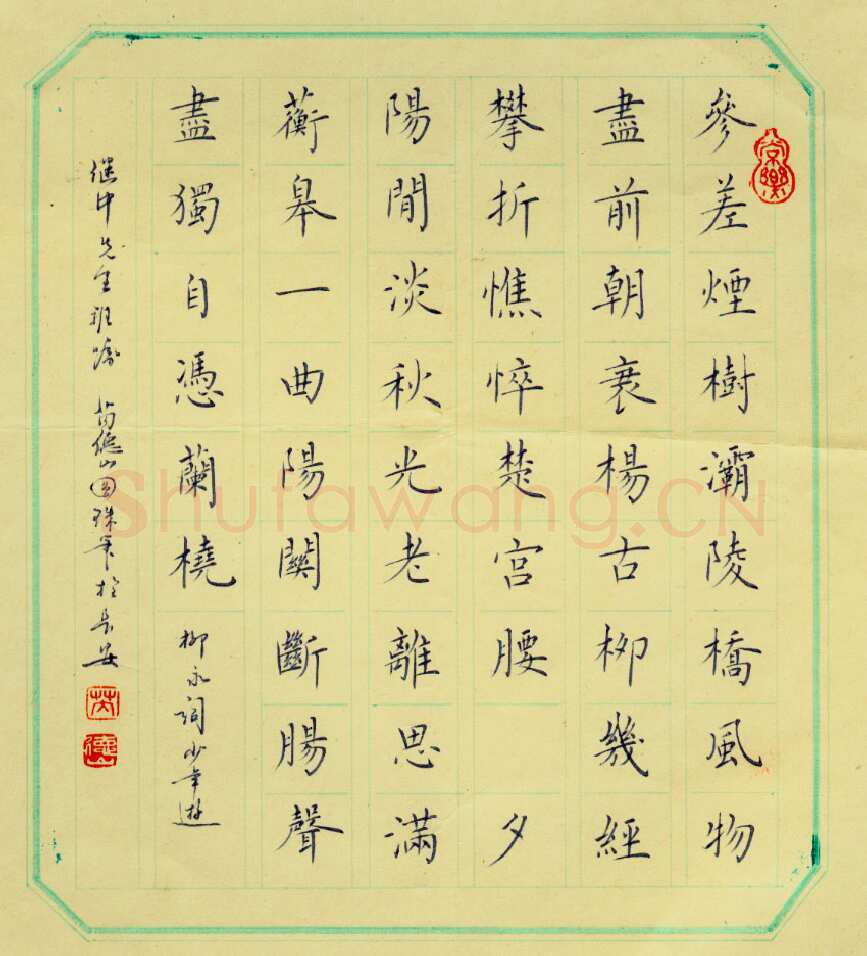 參差煙樹灞陵橋風物
盡前朝衰楊古柳幾經
攀折憔悴楚宮腰 夕
陽閒淡秋光老離思滿
蘅皋一曲陽關斷腸聲
盡獨自憑蘭橈
柳永詞少年游
继中先生 苗德山圆珠笔於长安
Shufawang.CN